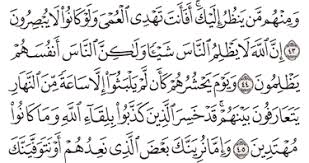 وَمِنْهُم مَّن يَنظُرُ إِلَيْكَ ۚ أَفَأَنتَ تَهْدِى ٱلْعُمْىَ وَلَوْ كَانُوا۟ لَا يُبْصِرُونَ
﴿٤٣﴾ إِنَّ ٱللَّهَ لَا يَظْلِمُ ٱلنَّاسَ شَيْـًٔا وَلَـٰكِنَّ ٱلنَّاسَ أَنفُسَهُمْ
يَظْلِمُونَ ﴿٤٤﴾ وَيَوْمَ يَحْشُرُهُمْ كَأَن لَّمْ يَلْبَثُوٓا۟ إِلَّا سَاعَةً مِّنَ ٱلنَّهَارِ
يَتَعَارَفُونَ بَيْنَهُمْ ۚ قَدْ خَسِرَ ٱلَّذِينَ كَذَّبُوا۟ بِلِقَآءِ ٱللَّهِ وَمَا كَانُوا۟
مُهْتَدِينَ ﴿٤٥﴾ وَإِمَّا نُرِيَنَّكَ بَعْضَ ٱلَّذِى نَعِدُهُمْ أَوْ نَتَوَفَّيَنَّكَ